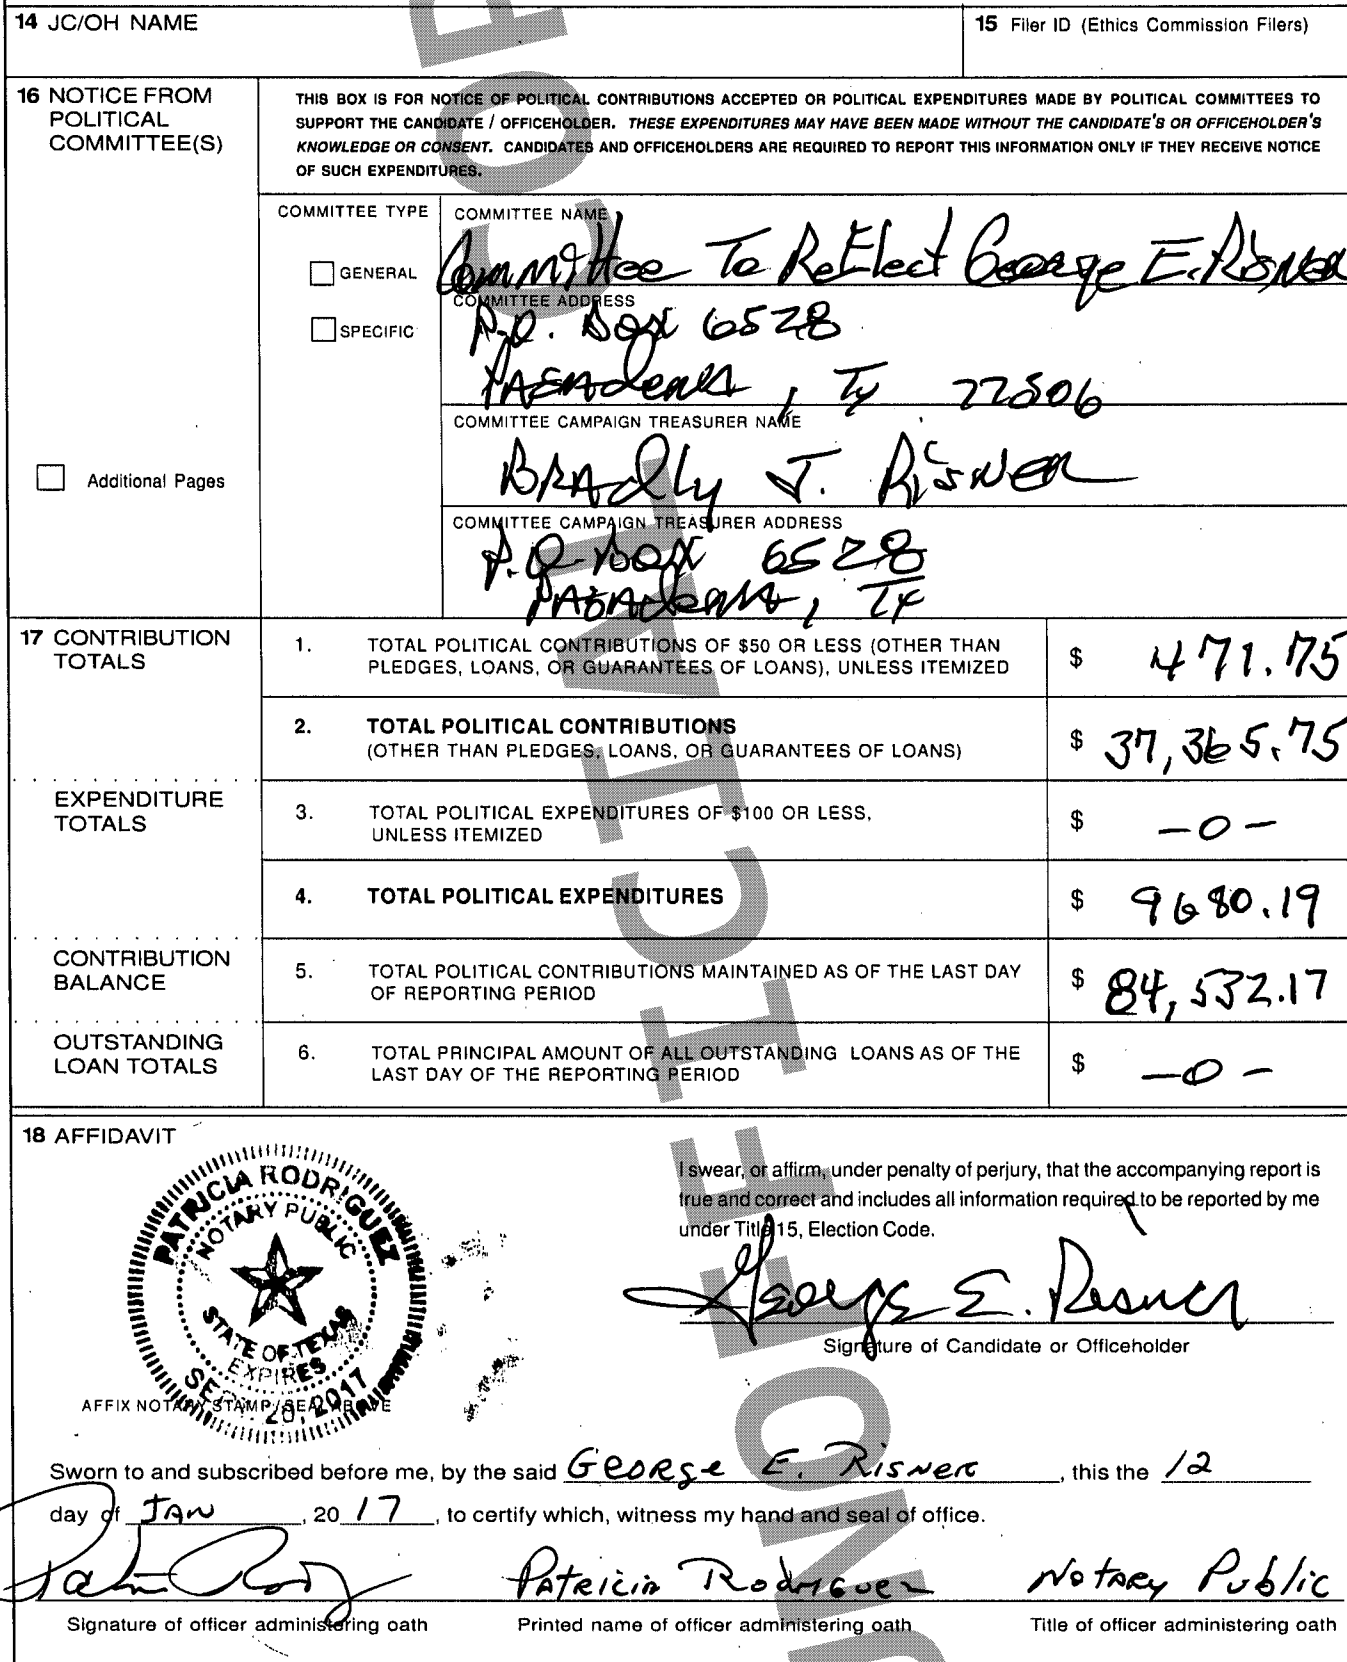 14 JC/OH NAME
15 Filer ID (Ethics Commission Filers)
16 NOTICE FROM POLITICAL COMMITTEE(S)
THIS BOX IS FOR NOTICE OF POLITICAL CONTRIBUTIONS ACCEPTED OR POLITICAL EXPENDITURES MADE BY POLITICAL COMMITTEES TO
SUPPORT THE CANDIDATE / OFFICEHOLDER. THESE EXPENDITURES MAY HAVE BEEN MADE WITHOUT THE CANDIDATE'S OR OFFICEHOLDER'S
KNOWLEDGE OR CONSENT. CANDIDATES AND OFFICEHOLDERS ARE REQUIRED TO REPORT THIS INFORMATION ONLY IF THEY RECEIVE NOTICE
OF SUCH EXPENDITURES.
COMMITTEE TYPE
GENERAL
SPECIFIC
COMMITTEE NAME
Committee To ReElect George E. Risner
COMMITTEE ADDRESS
P.O. Box 6528
Pasadena, Tx 77506
COMMITTEE CAMPAIGN TREASURER NAME
Bradly J. Risner
Additional Pages
COMMITTEE CAMPAIGN TREASURER ADDRESS
P.O. Box 6528
Pasadena, Tx
17 CONTRIBUTION TOTALS
1. TOTAL POLITICAL CONTRIBUTIONS OF $50 OR LESS (OTHER THAN
PLEDGES, LOANS, OR GUARANTEES OF LOANS), UNLESS ITEMIZED
$ 471.75
2. TOTAL POLITICAL CONTRIBUTIONS
(OTHER THAN PLEDGES, LOANS, OR GUARANTEES OF LOANS)
$ 37,365.75
EXPENDITURE TOTALS
3. TOTAL POLITICAL EXPENDITURES OF $100 OR LESS,
UNLESS ITEMIZED
$ -0-
4. TOTAL POLITICAL EXPENDITURES
$ 9680.19
CONTRIBUTION BALANCE
5. TOTAL POLITICAL CONTRIBUTIONS MAINTAINED AS OF THE LAST DAY
OF REPORTING PERIOD
$ 84,532.17
OUTSTANDING LOAN TOTALS
6. TOTAL PRINCIPAL AMOUNT OF ALL OUTSTANDING LOANS AS OF THE
LAST DAY OF THE REPORTING PERIOD
$ -0-
18 AFFIDAVIT
PATRICIA RODRIGUEZ
NOTARY PUBLIC
STATE OF TEXAS
EXPIRES
SEPT. 20, 2017
I swear, or affirm, under penalty of perjury, that the accompanying report is
true and correct and includes all information required to be reported by me
under Title 15, Election Code.
George E. Risner
Signature of Candidate or Officeholder
AFFIX NOTARY STAMP / SEAL ABOVE
Sworn to and subscribed before me, by the said George E. Risner, this the 12
day of Jan, 20 17, to certify which, witness my hand and seal of office.
Patricia Rodriguez
Notary Public
Signature of officer administering oath
Printed name of officer administering oath
Title of officer administering oath